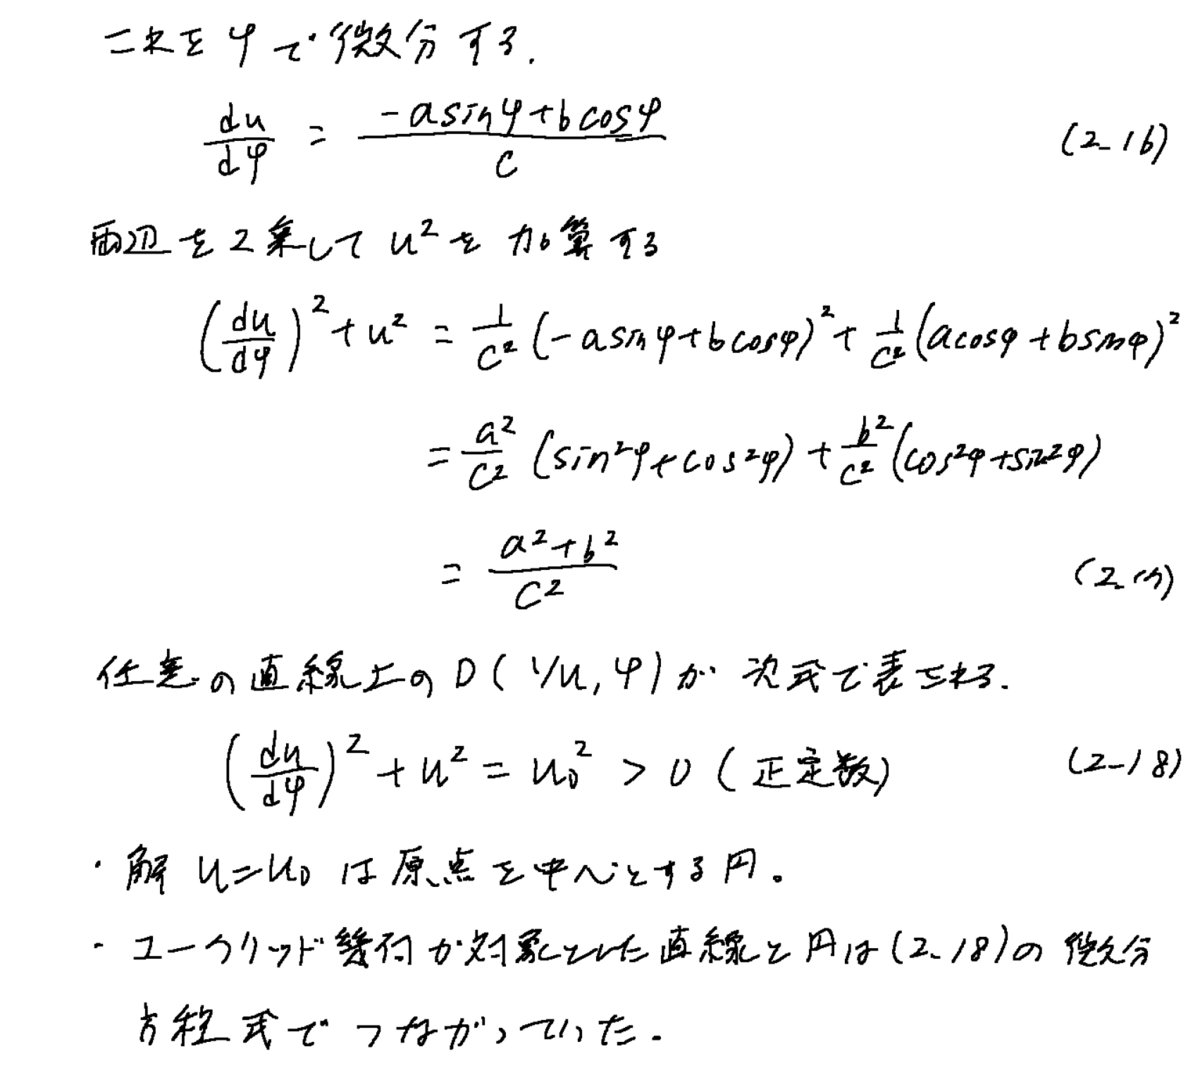 これをφで微分する.
du/dφ = (-a sinφ + b cosφ)/c (2-16)
両辺を2乗してu²を加算する
(du/dφ)² + u² = 1/c² (-a sinφ + b cosφ)² + 1/c² (a cosφ + b sinφ)²
= a²/c² (sin²φ + cos²φ) + b²/c² (cos²φ + sin²φ)
= (a² + b²)/c² (2-17)
任意の直線上のD(1/u, φ)が次式で表される.
(du/dφ)² + u² = u₀² > 0 (正定数) (2-18)
・解 u=u₀ は原点を中心とする円。
・ユークリッド幾何が対象とした直線と円は(2-18)の微分
方程式でつながっていた.